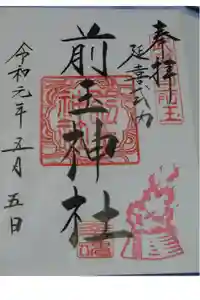 奉拝
延喜式内
前玉神社
令和元年五月五日